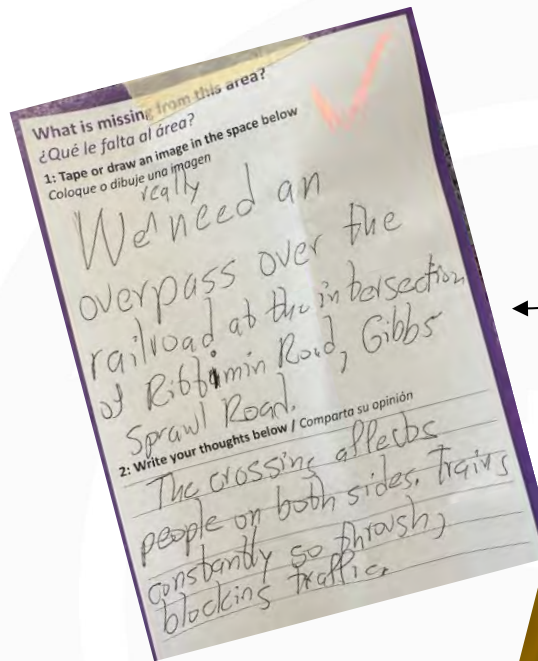 What is missing from this area?
¿Qué le falta al área?
1: Tape or draw an image in the space below
Coloque o dibuje una imagen
really
We need an
overpass over the
railroad at the intersection
of Rittimin Road, Gibbs
Sprawl Road.
2: Write your thoughts below / Comparta su opinión
The crossing affects
people on both sides. Trains
constantly go through,
blocking traffic.